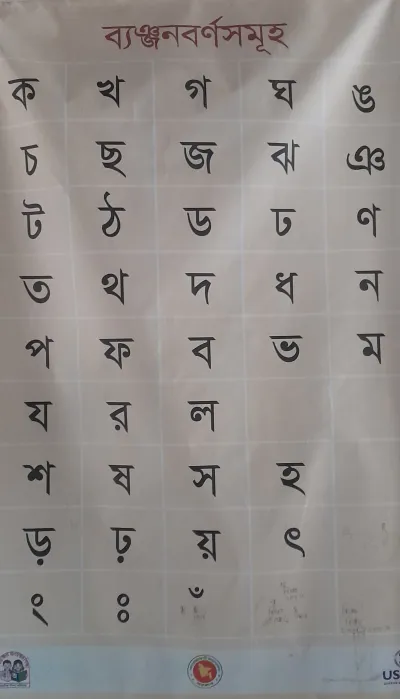 ব্যঞ্জনবর্ণসমূহ
ক খ গ ঘ ঙ
চ ছ জ ঝ ঞ
ট ঠ ড ঢ ণ
ত থ দ ধ ন
প ফ ব ভ ম
য র ল
শ ষ স হ
ড় ঢ় য় ৎ
ং ঃ ঁ